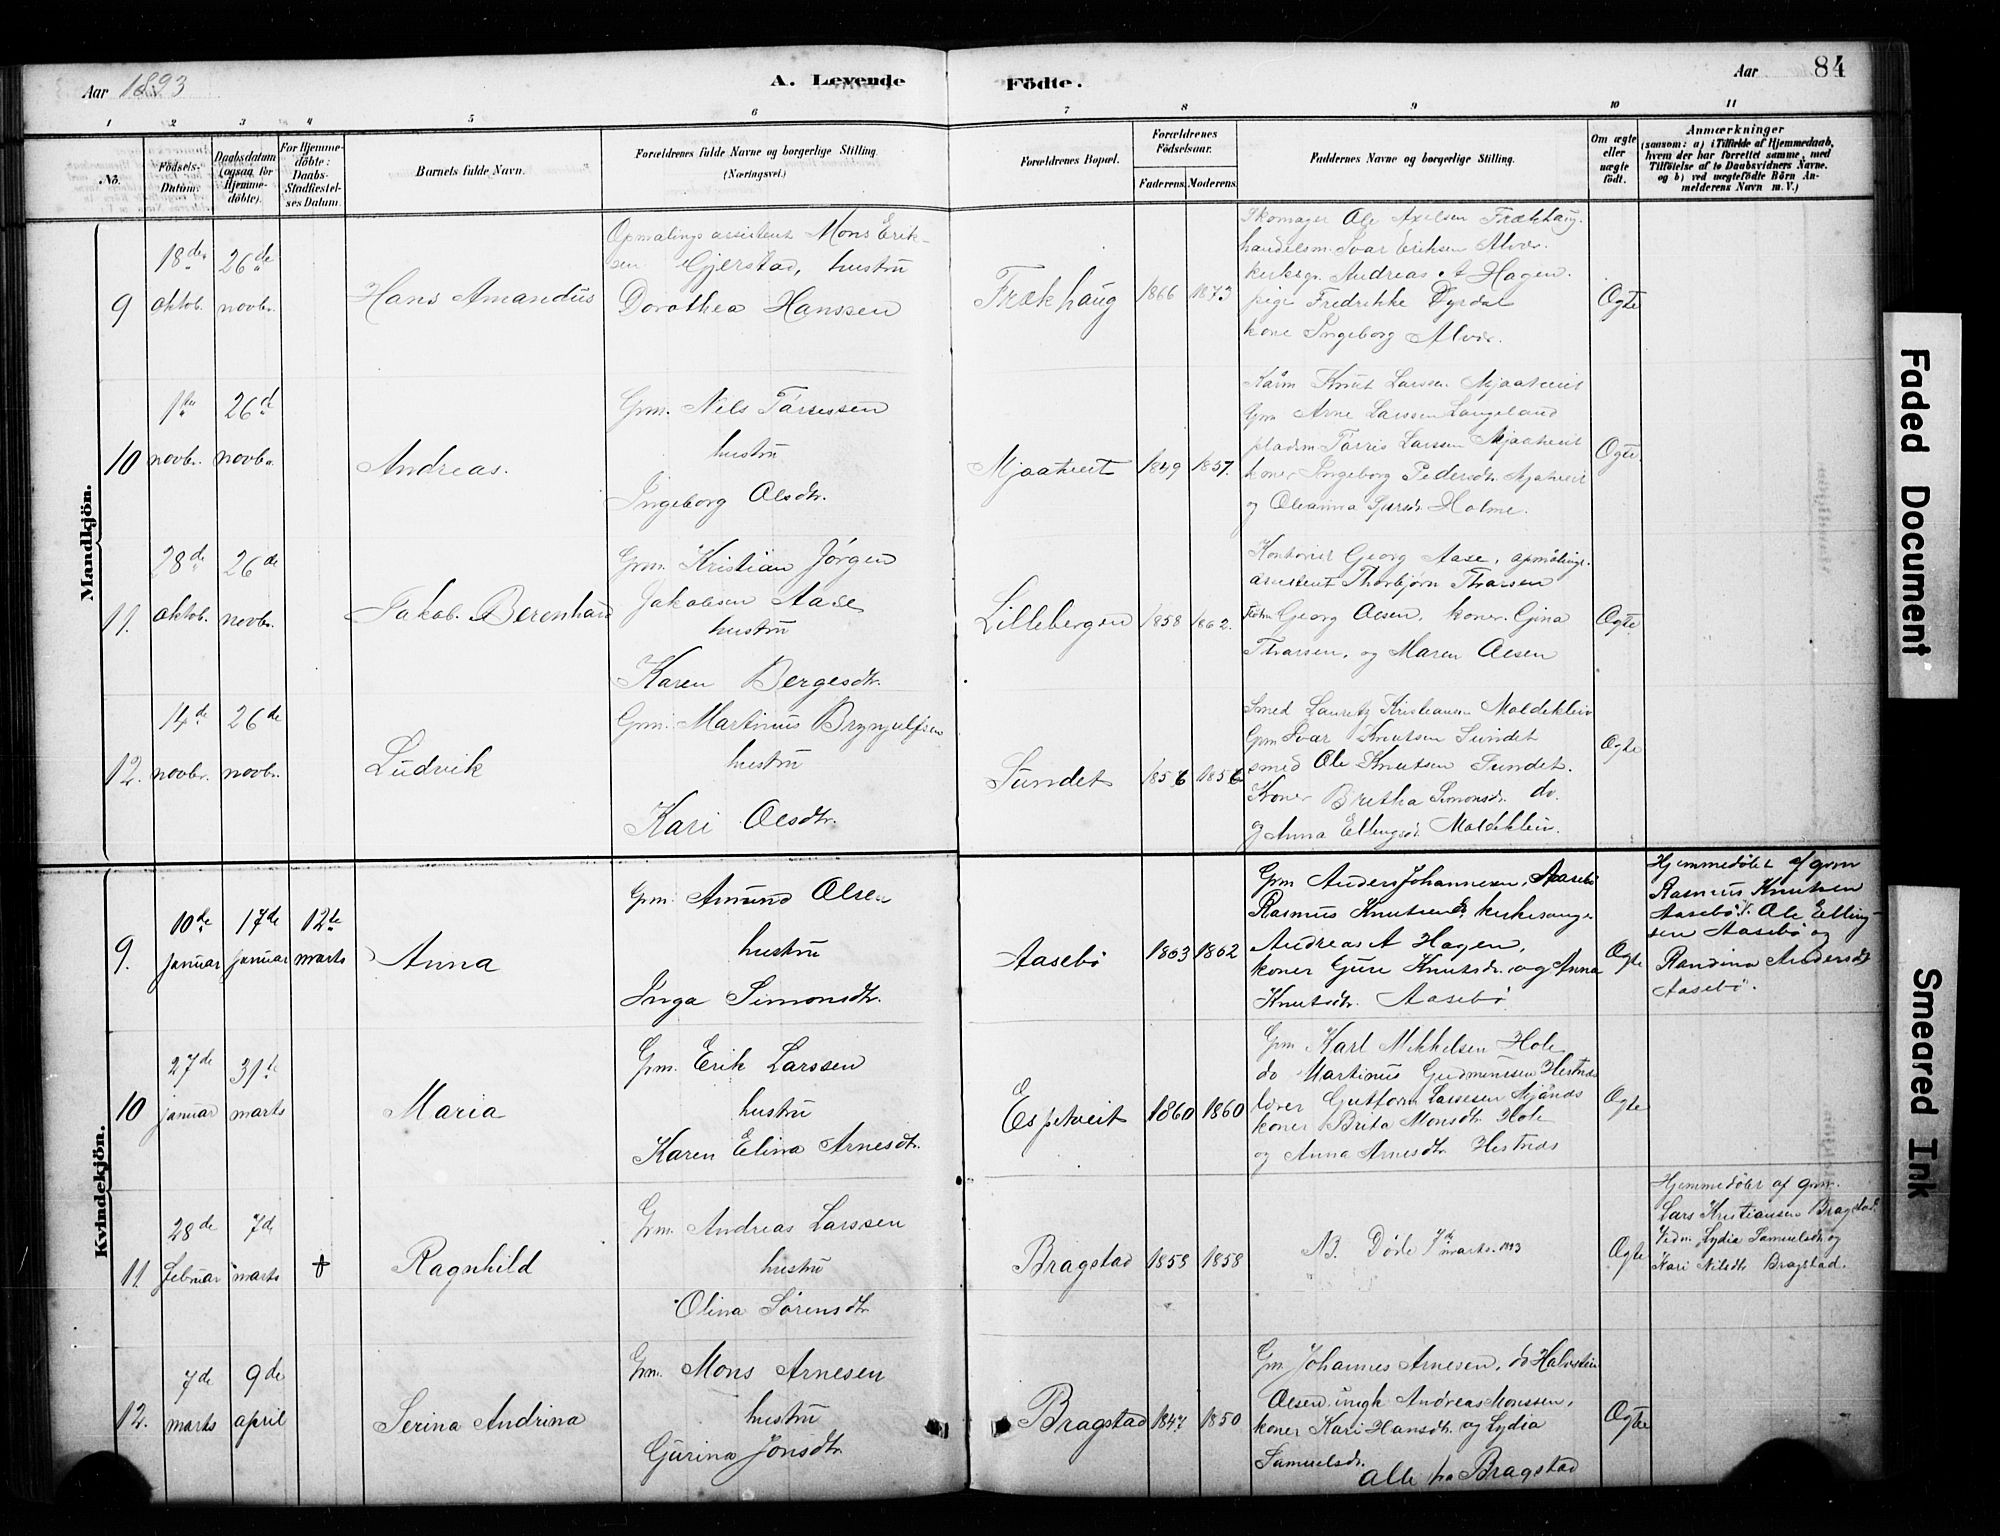 Aar 1893
A. Levende
Födte.
Aar
84
1 2 3 4 5 6 7 8 9 10 11
No.
Födsels-Datum.
Daabsdatum (ogsaa for Hjemme-döbte).
For Hjemme-döbte: Daabs-Stadfæstel-ses Datum.
Barnets fulde Navn.
Forældrenes fulde Navne og borgerlige Stilling. (Næringsvei.)
Forældrenes Bopæl.
Forældrenes Födselsaar.
Faderens. Moderens.
Faddernes Navne og borgerlige Stilling.
Om ægte eller uægte födt.
Anmærkninger
(saasom: a) i Tilfælde af Hjemmedaab, hvem der har forrettet samme, med Tilföielse af to Daabsvidners Navne, og b) ved uægtefödte Börn An-melderens Navn m. V.)
Mandkjön.
9
18de oktob.
26de novbr.
Hans Amandus
Opmalings assistent Mons Erik-
sen Gjerstad, hustru
Dorothea Hanssen
Frækhaug
1866 1873
Skomager Ole Axelsen Frækhaug.
handelsm. Ivar Eriksen Alver.
kirkesgr. Andreas A Hagen.
pige Fredrikke Dyrdal
kone Ingeborg Alver.
Ogte
10
1ste novbr.
26d novbr.
Andreas.
Grm. Nels Tarresen
hustru
Ingeborg Olsdtr.
Mjaatveit
1849 1857.
Kårm Knut Larssen Mjaatveit
Grm Arne Larssen Langeland
pladsm Tarris Larssen Mjaatveit
koner Ingeborg Pedersdtr. Mjatveit
og Oleanna Holme.
Ogte
11.
28de oktob.
26de novbr.
Jakob. Berenhard
Grm. Kristian Jørgen
Jakobsen Aase
hustru
Karen Bergesdtr.
Lillebergen
1858 1862.
Kontorist Georg Aase, opmålings-
assistent Thorbjørn Thorsen
Georg Olsen, koner. Gina
Thorsen, og Maren Olsen
Ogte
12.
14de novbr.
26de novbr.
Ludvik
Grm. Martinus Brynjulfsen
hustru
Kari Olsdtr.
Sundet
1856 1856
Smed Lauretz Kristiansen Moldekleiv
Grm Ivar Knutsen Sundet
smed Ole Knutsen Sundet.
Koner Bretha Simonsdr. do.
og Anna Ellingsdr. Moldekleiv.
Ogte
Kvindekjön.
9.
10de januar
17de januar
12te marts
Anna
Grm. Amund Olsen
hustru
Inga Simonsdtr.
Aasebø
1863 1862
Grm Anders Johannesen, Aasebø
Rasmus Knutsen do, kirkesanger
Andreas A Hagen,
koner Guri Knutsdr. og Anna
Knutsdtr. Aasebø
Ogte
Hjemmedøbt af grm
Rasmus Knutsen
Aasebø V. Ole Elling-
sen Aasebø og
Randina Andersdt
Aasebø.
10
27de januar
31te marts
Maria
Grm. Erik Larssen
hustru
Karen Elina Arnesdtr.
Espetveit
1860 1860
Grm Karl Mikkelsen Hole
do Martinus Gudmundsen Hestnes
lærer Guttorm Larssen Mjånes
koner Brita Monsdtr. Hole
og Anna Arnesdtr Hestnes
Ogte
11.
28de februar
7d marts
+
Ragnhild
Grm. Andreas Larssen
hustru
Olina Sørensdtr
Bragstad
1859 1858
NB. Døde 7de marts 1893
Ogte
Hjemmedøbt af grm.
Lars Kristiansen Bragstad.
Vidn. Lydia Samuelsdr og
Kari Nilsdtr Bragstad.
12.
7de marts
9de april
Serina Andrina
Grm. Mons Arnesen
hustru
Gurina Jonsdtr
Bragstad
1847 1850
Grm Johannes Arnesen, do Halvstein
Olsen, ungk Andreas Monssen,
koner Kari Hansdtr. og Lydia
Samuelsdr.
alle fra Bragstad
Ogte
Faded Document
Smeared Ink